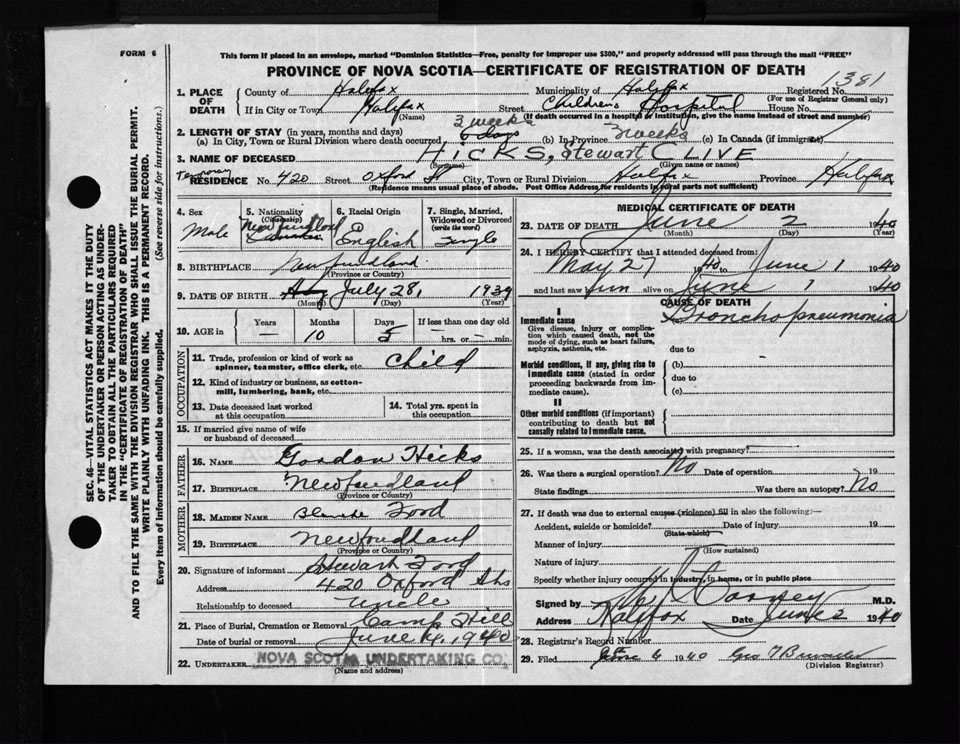 FORM 6
This form if placed in an envelope, marked "Dominion Statistics—Free, penalty for improper use $300," and properly addressed will pass through the mail "FREE"
PROVINCE OF NOVA SCOTIA—CERTIFICATE OF REGISTRATION OF DEATH
1381
1. PLACE OF DEATH County of Halifax Municipality of Halifax Registered No.
(For use of Registrar General only)
If in City or Town Halifax Street Children's Hospital House No.
(Name) (If death occurred in a hospital or institution, give the name instead of street and number)
2. LENGTH OF STAY (in years, months and days) 3 weeks
(a) In City, Town or Rural Division where death occurred 6 days (b) In Province 3 weeks (c) In Canada (if immigrant)
3. NAME OF DECEASED HICKS, Stewart CLIVE
(Surname) (Given name or names)
Temporary
RESIDENCE No. 420 Street Oxford St City, Town or Rural Division Halifax Province Halifax
(Residence means usual place of abode. Post Office Address for residents in rural parts not sufficient)
4. Sex Male
5. Nationality (Citizenship) Newfoundland
6. Racial Origin English
7. Single, Married, Widowed or Divorced (write the word) Single
8. BIRTHPLACE Newfoundland
(Province or Country)
9. DATE OF BIRTH July 28, 1939
(Month) (Day) (Year)
10. AGE in Years — Months 10 Days 5 If less than one day old
hrs. or min.
OCCUPATION
11. Trade, profession or kind of work as spinner, teamster, office clerk, etc. Child
12. Kind of industry or business, as cotton-mill, lumbering, bank, etc.
13. Date deceased last worked at this occupation
14. Total yrs. spent in this occupation
15. If married give name of wife or husband of deceased
FATHER
16. NAME Gordon Hicks
17. BIRTHPLACE Newfoundland
(Province or Country)
MOTHER
18. MAIDEN NAME Blanche Food
19. BIRTHPLACE Newfoundland
(Province or Country)
20. Signature of informant Stewart Food
Address 420 Oxford Sts
Relationship to deceased uncle
21. Place of Burial, Cremation or Removal Camp Hill
Date of burial or removal June 4, 1940
22. UNDERTAKER NOVA SCOTIA UNDERTAKING CO.
(Name and address)
MEDICAL CERTIFICATE OF DEATH
23. DATE OF DEATH June 2 1940
(Month) (Day) (Year)
24. I HEREBY CERTIFY that I attended deceased from:
May 27 1940 to June 1 1940
and last saw him alive on June 1 1940
CAUSE OF DEATH
I
Immediate cause Bronchopneumonia
Give disease, injury or complication which caused death, not the mode of dying, such as heart failure, asphyxia, asthenia, etc.
due to
Morbid conditions, if any, giving rise to immediate cause (stated in order proceeding backwards from immediate cause).
(b)
due to
(c)
II
Other morbid conditions (if important) contributing to death but not causally related to immediate cause.
25. If a woman, was the death associated with pregnancy?
26. Was there a surgical operation? No Date of operation 19
State findings Was there an autopsy? No
27. If death was due to external causes (violence) fill in also the following:
Accident, suicide or homicide? Date of injury 19
(State which)
Manner of injury
(How sustained)
Nature of injury
Specify whether injury occurred in industry, in home, or in public place
Signed by M.D.
Address Halifax Date June 2 1940
28. Registrar's Record Number
29. Filed June 6 1940 Geo
(Division Registrar)
SEC. 46—VITAL STATISTICS ACT MAKES IT THE DUTY
OF THE UNDERTAKER OR PERSON ACTING AS UNDER-
TAKER TO OBTAIN ALL THE PARTICULARS REQUIRED
IN THE "CERTIFICATE OF REGISTRATION OF DEATH"
AND TO FILE THE SAME WITH THE DIVISION REGISTRAR WHO SHALL ISSUE THE BURIAL PERMIT.
WRITE PLAINLY WITH UNFADING INK. THIS IS A PERMANENT RECORD.
Every item of information should be carefully supplied. (See reverse side for instructions.)